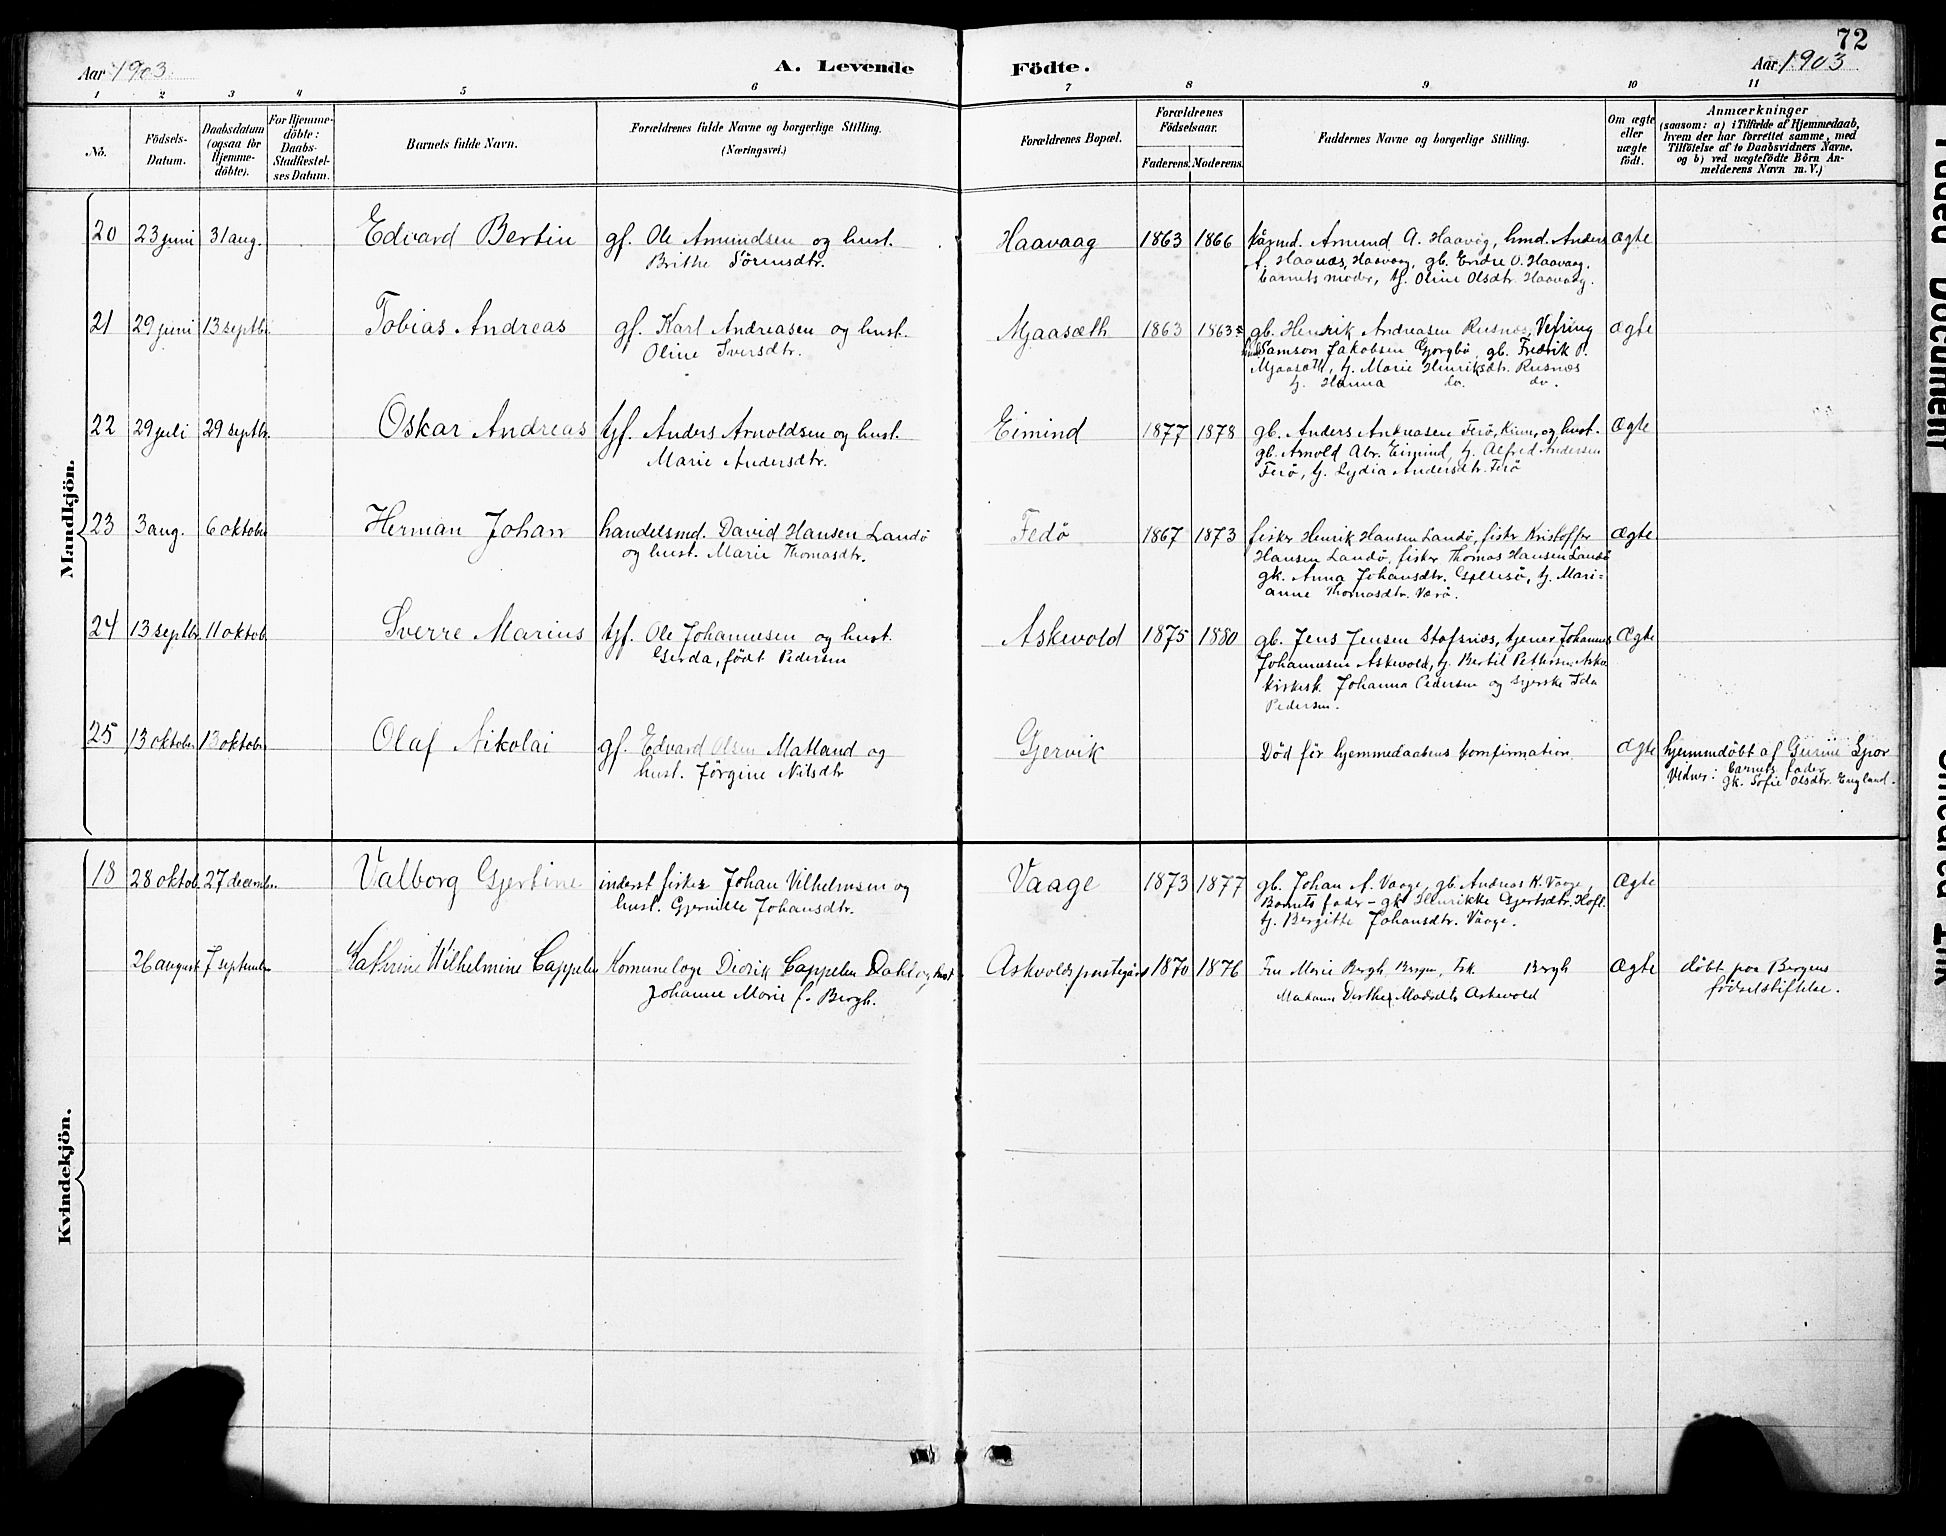 72
Aar 1903. A. Levende Födte. Aar 1903
1 2 3 4 5 6 7 8 9 10 11
No.
Födsels-Datum.
Daabsdatum (ogsaa för Hjemme-döbte).
For Hjemme-döbte: Daabs-Stadfæstel-ses Datum.
Barnets fulde Navn.
Forældrenes fulde Navne og borgerlige Stilling.
(Næringsvei.)
Forældrenes Bopæl.
Forældrenes Födselsaar.
Faderens. Moderens.
Faddernes Navne og borgerlige Stilling.
Om ægte eller uægte født.
Anmærkninger
(saasom: a) i Tilfælde af Hjemmedaab,
hvem der har forrettet samme, med
Tilföielse af to Daabsvidners Navne.
og b) ved uægtefödte Börn An-
melderens Navn m. V.)
Mandkjön.
20 23 juni 31 aug. Edvard Bertin gf. Ole Amundsen og hust. Haavaag 1863 1866 Amund A. Haavåg, Anders ægte
Brithe Sörensdtr. Haanæs, Haavaag, gb. Endre O. Haavaag.
barnets moder, tj. Oline Olsdtr. Haavaag.
21 29 juni 13 septbr. Tobias Andreas gf. Karl Andreasen og hust. Mjaasæth 1863 1863 gb. Henrik Andreasen Rusnæs, Vefring ægte
Oline Iversdtr. Samson Jakobsen Gjorgbö, gb. Fredrik P.
Mjaasæth, tj. Marie Henriksdtr. Rusnæs
tj. Hanna do. do.
22 29 juli 29 septbr. Oskar Andreas tjf. Anders Arnoldsen og hust. Eimind 1877 1878 gb. Anders Andreasen Ferö, Kinn, og hust. Ægte
Marie Andersdtr. gb. Arnold Abr. Eimind, tj. Alfred Andersen
Ferö, tj. Lydia Andersdtr. Ferö
23 3 aug. 6 oktober Herman Johan handelsmd. David Hansen Landö Fedö 1867 1873 fisker Henrik Hansen Landö, fisker Kristoffer Ægte
og hust. Marie Thomasdtr. Hansen Landö, fisker Thomas Hansen Landö
gk. Anna Johansdtr. tj. Mari-
anne Thomasdtr. Værö.
24 13 septbr. 11 oktob. Sverre Marius tjf. Ole Johannesen og hust. Askevold 1875 1880 gb. Jens Jensen Stafsnæs, tjener Johannes Ægte
Gerda, födt Pedersen Johannesen Askevold, tj. Bertil Petterson
Johanna Pedersen og syerske Ida
Pedersen.
25 13 oktobr. 13 oktobr. Olaf Nikolai gf. Edvard Olsen Matland og Gjervik Död för hjemmedaabens konfirmation. Ægte hjemmdöbt af Gurine Spor
hust. Jörgine Nilsdtr Vidner: barnets fader
gk. Sofie Olsdtr. England.
Kvindekjön.
18 28 oktob. 27 decembr. Valborg Gjertine inderst fisker Johan Vilhelmsen og Vaage 1873 1877 gb. Johan A. Vaage, gb. Andreas K. Vaage, Ægte
hust. Gjernille Johansdtr. Barnets fader - gk. Henrikke Gjertsdtr. Hofl.
tj. Bergitte Johansdtr. Vaage.
26 august 7 septembr. Kathrine Wilhelmine Cappelen Komunelæge Didrik Cappelen Dahl og hust Askvolds prestegård 1870 1876 Fru Marie Bergh, Bergen, Frk. Bergh Ægte döbt paa Bergens
Johanne Marie f. Bergh. Madame Dorthea Madsdtr Askevold födselstiftelse.
Faded Document
Smeared Ink